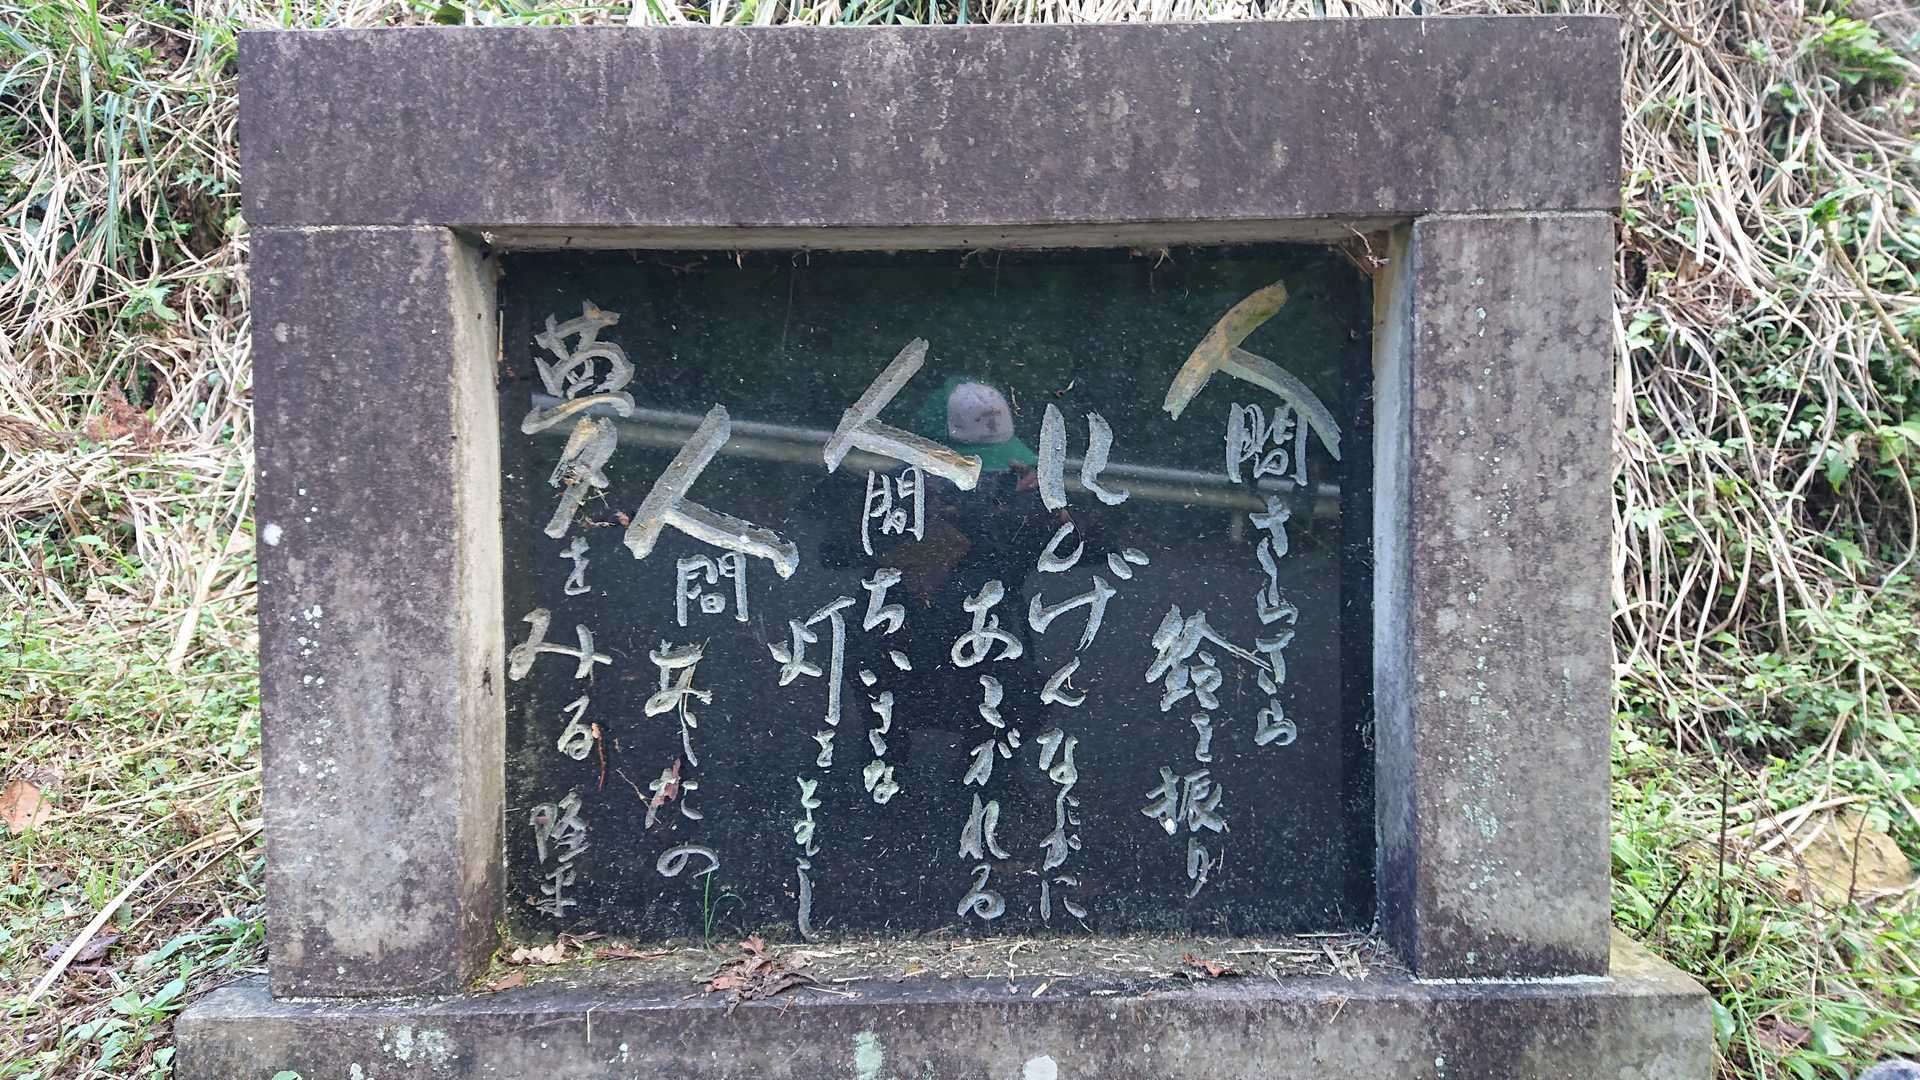 人間さらさら
鈴を振り
にんげんなかに
あこがれる
人間ちいさな
灯をともし
人間あしたの
夢をみる 隆平